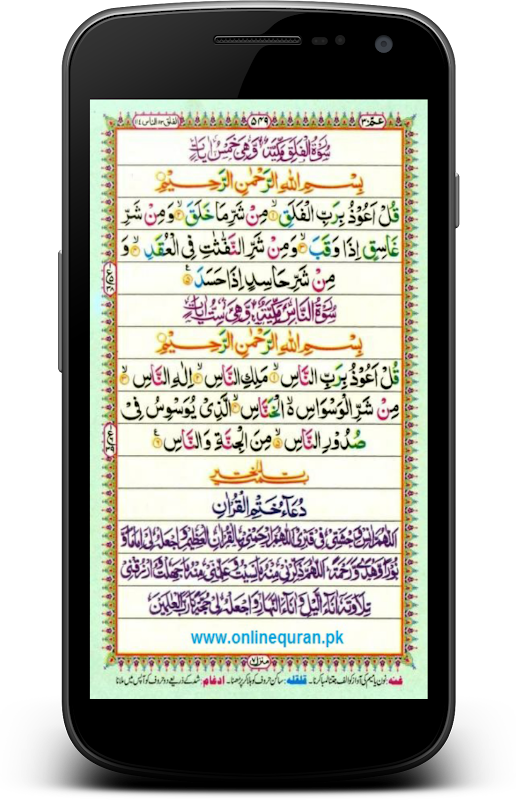 عمّ ٣٠ ٥٤٩ الفلق ١١٣ الناس ١١٤
سُوْرَةُ الْفَلَقِ مَكِّيَّةٌ وَّهِيَ خَمْسُ اٰيَاتٍ
بِسْمِ اللّٰهِ الرَّحْمٰنِ الرَّحِيْمِ
قُلْ اَعُوْذُ بِرَبِّ الْفَلَقِ ۙ‏﴿۱﴾ مِنْ شَرِّ مَا خَلَقَ ۙ‏﴿۲﴾ وَ مِنْ شَرِّ
غَاسِقٍ اِذَا وَقَبَ ۙ‏﴿۳﴾ وَ مِنْ شَرِّ النَّفّٰثٰتِ فِى الْعُقَدِ ۙ‏﴿۴﴾ وَ
مِنْ شَرِّ حَاسِدٍ اِذَا حَسَدَ ‏﴿۵﴾
سُوْرَةُ النَّاسِ مَكِّيَّةٌ وَّهِيَ سِتُّ اٰيَاتٍ
بِسْمِ اللّٰهِ الرَّحْمٰنِ الرَّحِيْمِ
قُلْ اَعُوْذُ بِرَبِّ النَّاسِ ۙ‏﴿۱﴾ مَلِكِ النَّاسِ ۙ‏﴿۲﴾ اِلٰهِ النَّاسِ ۙ‏﴿۳﴾
مِنْ شَرِّ الْوَسْوَاسِ ۙ الْخَنَّاسِ ۙ‏﴿۴﴾ الَّذِىْ يُوَسْوِسُ فِىْ
صُدُوْرِ النَّاسِ ۙ‏﴿۵﴾ مِنَ الْجِنَّةِ وَ النَّاسِ ‏﴿۶﴾
دُعَاءُ خَتْمِ الْقُرْاٰنِ
اَللّٰهُمَّ اٰنِسْ وَحْشَتِيْ فِيْ قَبْرِيْ اَللّٰهُمَّ ارْحَمْنِيْ بِالْقُرْاٰنِ الْعَظِيْمِ وَاجْعَلْهُ لِيْ اِمَامًا وَّ
نُوْرًا وَّهُدًى وَّرَحْمَةً اَللّٰهُمَّ ذَكِّرْنِيْ مِنْهُ مَا نَسِيْتُ وَعَلِّمْنِيْ مِنْهُ مَا جَهِلْتُ وَارْزُقْنِيْ
تِلَاوَتَهٗ اٰنَاءَ الَّيْلِ وَاٰنَاءَ النَّهَارِ وَاجْعَلْهُ لِيْ حُجَّةً يَّا رَبَّ الْعٰلَمِيْنَ
www.onlinequran.pk
منزل ٧
غنه: نون یا میم کی آواز کو الف جتنا لمبا کرنا۔ قلقله: ساکن حروف کو ہلا کر پڑھنا۔ ادغام: شد کے ذریعے دو حروف کو آپس میں ملانا